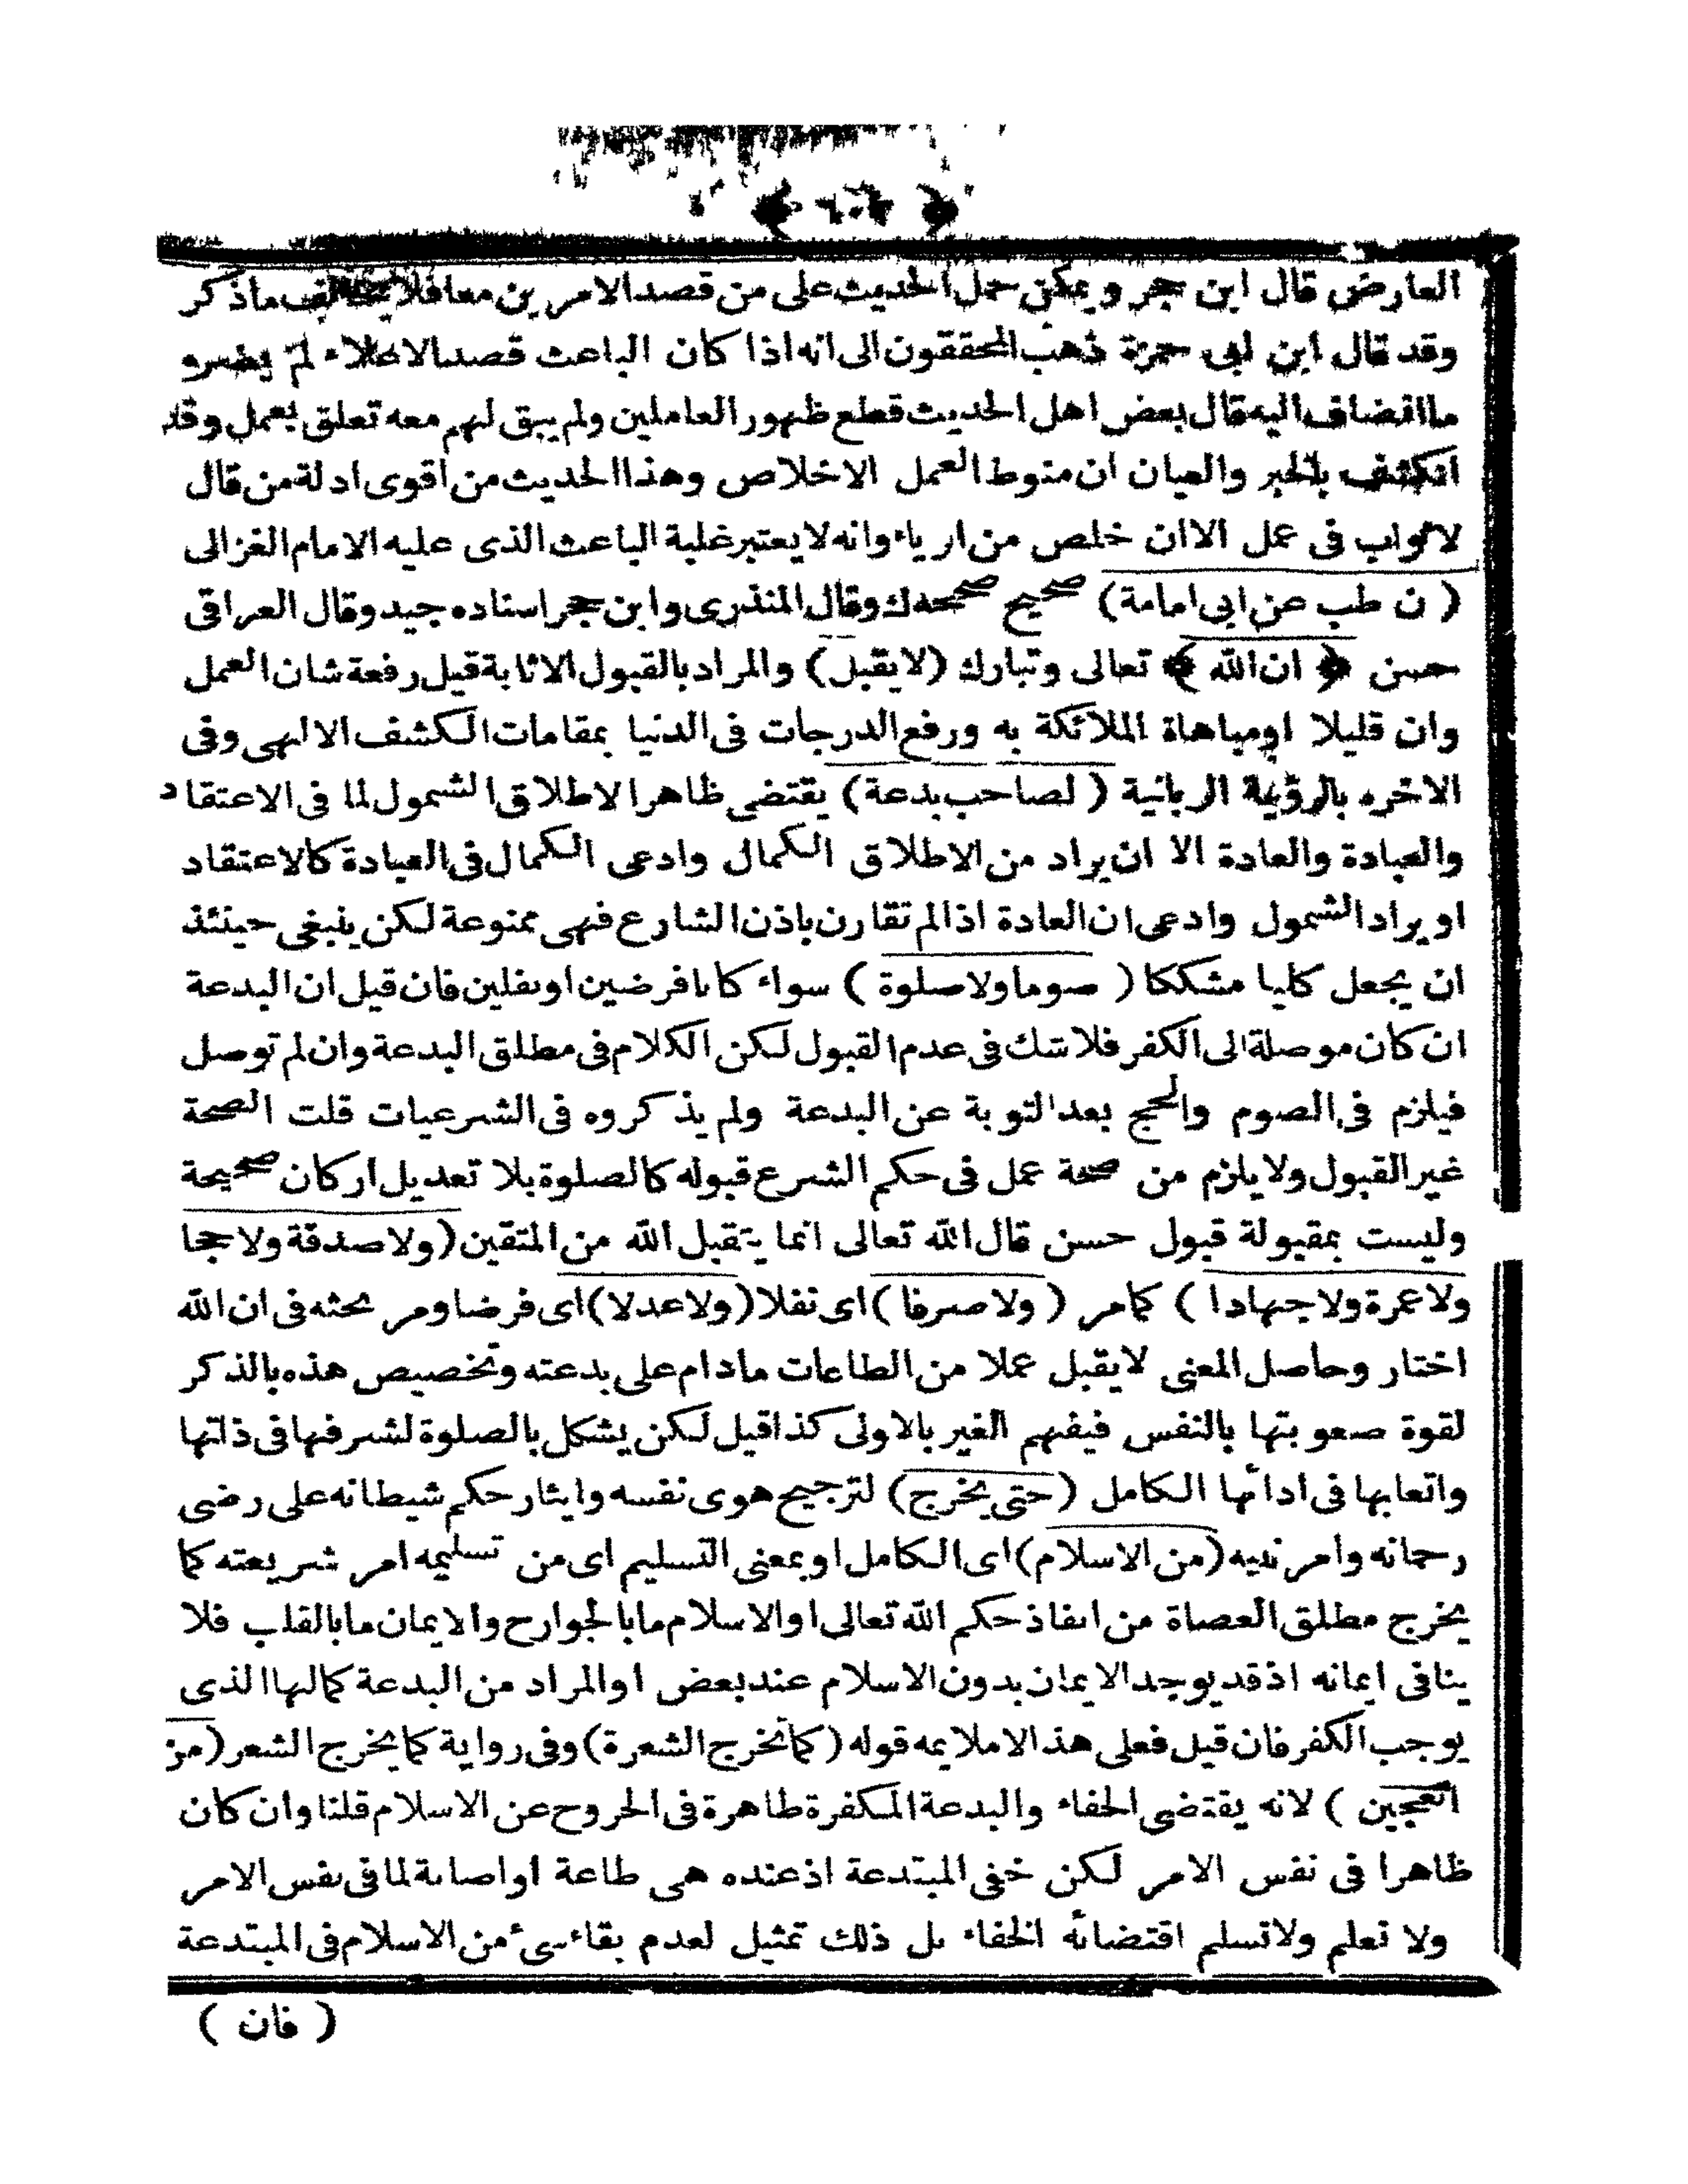 ﴿ ٦٠٦ ﴾
العارض قال ابن حجر ويمكن حمل الحديث على من قصد الامرين معا فلا يخالف ماذكر
وقد قال ابن ابى جمرة ذهب المحققون الى انه اذا كان الباعث قصد الاعلاء لم يضره
ما انضاف اليه قال بعض اهل الحديث قطع ظهور العاملين ولم يبق لهم معه تعلق بعمل وقد
انكشف بالخبر والعيان ان منوط العمل الاخلاص وهذا الحديث من اقوى ادلة من قال
لا ثواب فى عمل الا ان خلص من ارياء وانه لا يعتبر غلبة الباعث الذى عليه الامام الغزالى
( ن طب عن ابى امامة ) صحيح صححه ك وقال المنذرى وابن حجر اسناده جيد وقال العراقى
حسن ﴿ ان الله ﴾ تعالى وتبارك (لايقبل) والمراد بالقبول الاثابة قيل رفعة شان العمل
وان قليلا اومباهاة الملائكة به ورفع الدرجات فى الدنيا بمقامات الكشف الالهى وفى
الاخره بالرؤية الربانية ( لصاحب بدعة ) يقتضى ظاهر الاطلاق الشمول لما فى الاعتقاد
والعبادة والعادة الا ان يراد من الاطلاق الكمال وادعى الكمال فى العبادة كالاعتقاد
او يراد الشمول وادعى ان العادة اذا لم تقارن باذن الشارع فهى ممنوعة لكن ينبغى حينئذ
ان يجعل كليا مشككا ( صوما ولا صلوة ) سواء كانا فرضين اونفلين فان قيل ان البدعة
ان كان موصلة الى الكفر فلاشك فى عدم القبول لكن الكلام فى مطلق البدعة وان لم توصل
فيلزم فى الصوم والحج بعد التوبة عن البدعة ولم يذكروه فى الشرعيات قلت الصحة
غير القبول ولا يلزم من صحة عمل فى حكم الشرع قبوله كالصلوة بلا تعديل اركان صحيحة
وليست بمقبولة قبول حسن قال الله تعالى انما يتقبل الله من المتقين (ولا صدقة ولا حجا
ولا عمرة ولا جهادا ) كمامر ( ولا صرفا ) اى نفلا (ولا عدلا) اى فرضا ومر بحثه فى ان الله
اختار وحاصل المعنى لايقبل عملا من الطاعات مادام على بدعته وتخصيص هذه بالذكر
لقوة صعوبتها بالنفس فيفهم الغير بالاولى كذا قيل لكن يشكل بالصلوة لشرفها فى ذاتها
واتعابها فى ادائها الكامل (حتى يخرج) لترجيح هوى نفسه وايثار حكم شيطانه على رضى
رحمانه وامر نبيه (من الاسلام) اى الكامل اوبمعنى التسليم اى من تسليمه امر شريعته كما
يخرج مطلق العصاة من انفاذ حكم الله تعالى او الاسلام ما بالجوارح والايمان ما بالقلب فلا
ينافى ايمانه اذ قد يوجد الايمان بدون الاسلام عند بعض او المراد من البدعة كمالها الذى
يوجب الكفر فان قيل فعلى هذا لا ملايمه قوله (كما تخرج الشعرة) وفى رواية كما يخرج الشعر (من
العجين ) لانه يقتضى الخفاء والبدعة المكفرة ظاهرة فى الخروج عن الاسلام قلنا وان كان
ظاهرا فى نفس الامر لكن خفى المبتدعة اذ عنده هى طاعة او اصابة لما فى نفس الامر
ولا تعلم ولا تسلم اقتضائه الخفاء بل ذلك تمثيل لعدم بقاء شىء من الاسلام فى المبتدعة
( فان )